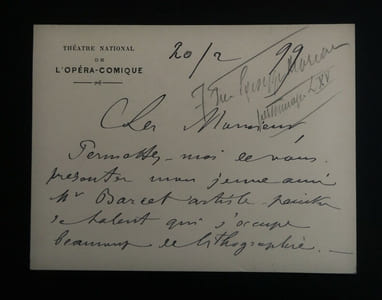 THÉÂTRE NATIONAL
DE
L'OPÉRA-COMIQUE
20/2 99
7 rue
LXV
Cher Monsieur
Permettez-moi de vous
présenter mon jeune ami
Mr Barcet artiste-peintre
de talent qui s'occupe
beaucoup de lithographie.